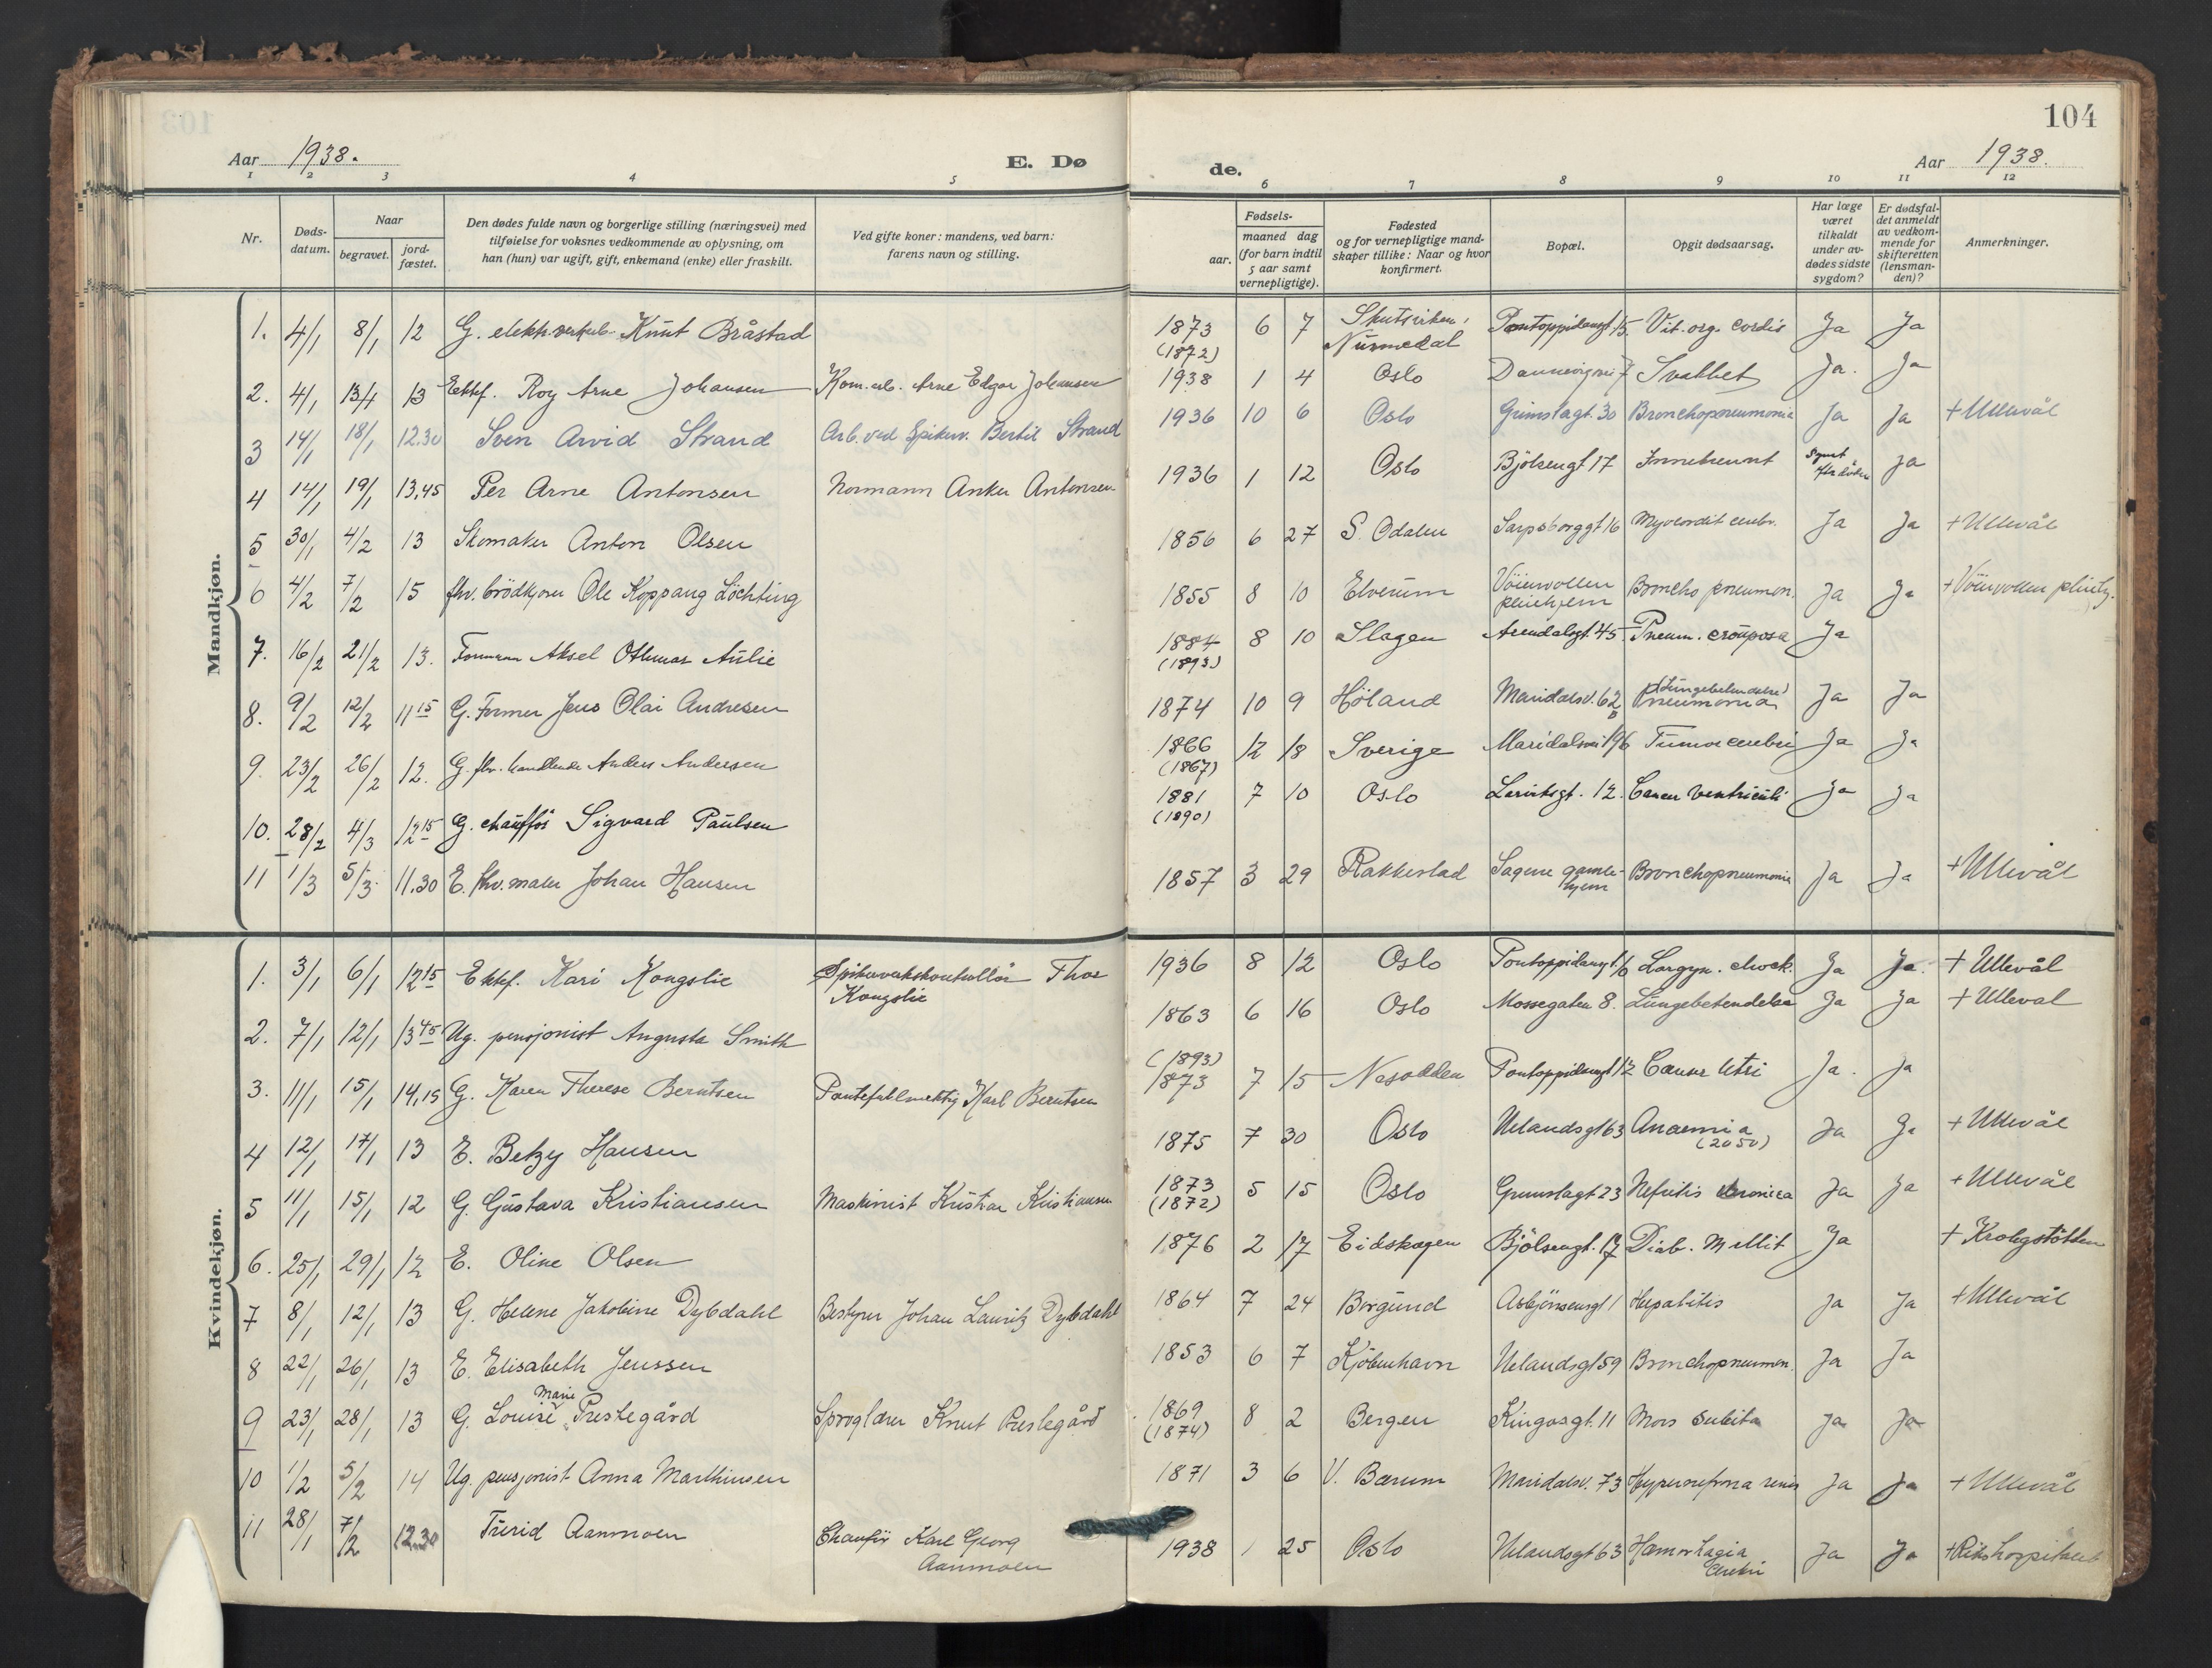 104
Aar 1938.
E. Dø
de.
Aar 1938.
1 2 3 4 5 6 7 8 9 10 11 12
Nr.
Døds-
datum.
Naar
begravet.
jord-
fæstet.
Den dødes fulde navn og borgerlige stilling (næringsvei) med
tilføielse for voksnes vedkommende av oplysning, om
han (hun) var ugift, gift, enkemand (enke) eller fraskilt.
Ved gifte koner: mandens, ved barn:
farens navn og stilling.
Fødsels-
aar.
maaned dag
(for barn indtil
5 aar samt
vernepligtige).
Fødested
og for vernepligtige mand-
skaper tillike: Naar og hvor
konfirmert.
Bopæl.
Opgit dødsaarsag.
Har læge
været
tilkaldt
under av-
dødes sidste
sygdom?
Er dødsfal-
det anmeldt
av vedkom-
mende for
skifteretten
(lensman-
den)?
Anmerkninger.
Mandkjøn.
1. 4/1 8/1 12 G. Knut Bråstad 1873 (1872) 6 7 Nürmedal Pontoppidansgt. 15 Vit. org. cordis Ja Ja
2. 4/1 13/1 13 Ektef. Roy Arne Johansen Arne Edgar Johansen 1938 1 4 Oslo Svakhet Ja. Ja
3 14/1 18/1 12.30 Sven Arvid Strand Arb. ved Spikerv. Bertil Strand 1936 10 6 Oslo Grimstagt. 30 Bronchopneumonia Ja Ja + Ullevål
4 14/1 19/1 13,45 Per Arne Antonsen Normann Anker Antonsen 1936 1 12 Oslo Bjölsengt 17 Innebrennt Ja
5 30/1 4/2 13 Skomaker Anton Olsen 1856 6 27 S. Odalen Sarpsborggt 16 Ja Ja + Ullevål
6 4/2 7/2 15 fhv. brödkjører Ole Koppang Löchting 1855 8 10 Elverum Vöienvollen pleiehjem Broncho pneumon. Ja Ja + Vöienvollen pleiehj.
7. 16/2 21/2 13. Formann Aksel Othmar Aulie 1884 (1893) 8 10 Slagen Arendalsgt. 45 Pneum. crouposa Ja
8. 9/2 12/2 11 15 G. Former Jens Olai Andresen 1874 10 9 Höland Maridalsv. 62 B (Lungebetendelse) Pneumonia Ja Ja
9. 23/2 26/2 12. G. fhv. handlende Anders Andersen 1866 (1867) 12 18 Sverige Maridalsvei 196 Tumor cerebri Ja Ja
10. 28/2 4/3 12 15 G. chauffør Sigvard Paulsen 1881 (1890) 7 10 Oslo Larviksgt. 12. Cancer ventriculi Ja Ja
11 1/3 5/3 11.30 E. fhv. maler Johan Hansen 1857 3 29 Rakkestad Sagene gamle-hjem Bronchopneumonia Ja Ja + Ullevål
Kvindekjøn.
1. 3/1 6/1 12 15 Ektef. Kari Kongslie Spikerverkskontrollør Thor Kongslie 1936 8 12 Oslo Pontoppidansgt. 16 Laryn. chock. Ja Ja. + Ullevål
2. 7/1 12/1 13 45 Ug. pensjonist Augusta Smith 1863 6 16 Oslo Mossegaten 8. Lungebetendelse Ja Ja + Ulleval
3. 11/1 15/1 14,15 G. Karen Therese Berntsen Karl Berntsen (1893) 1873 7 15 Nesodden Pontoppidansgt 12 Cancer Uteri Ja. Ja
4 12/1 17/1 13 E. Betzy Hansen 1875 7 30 Oslo Uelandsgt 63 Anaemia (2050) Ja Ja + Ullevål
5 11/1 15/1 12 G. Gustava Kristiansen Maskinist Kristian Kristiansen 1873 (1872) 5 15 Oslo Grimstagt 23 Nefritis chronica Ja Ja + Ullevål
6. 25/1 29/1 12 E. Oline Olsen 1876 2 17 Eidskogen Bjölsengt. 17 Diab. Mellit Ja + Krohgstötten
7 8/1 12/1 13 G. Helene Jakobine Dybdahl Bestyrer Johan Lauritz Dybdahl 1864 7 24 Borgund Asbjörnsensgt 1 Hepatitis Ja Ja + Ullevål
8 22/1 26/1 13 E. Elisabeth Jenssen 1853 6 7 Kjöbenhavn Uelandsgt 59 Bronchopneumon. Ja Ja
9 23/1 28/1 13 G. Louise Marie Prestegård Sproglærer Knut Prestegård 1869 (1874) 8 2 Bergen Kingosgt. 11 Mors subita Ja Ja
10 1/2 5/2 14 Ug. pensjonist Anna Marthinsen 1871 3 6 V. Bærum Maridalsv. 73 Hypernefroma renis Ja Ja + Ullevål
11 28/1 7/2 12.30 Turid Aanmoen Chauffør Karl Georg Aanmoen 1938 1 25 Oslo Uelandsgt 63 Hæmorhagia Cerebri Ja Ja + Rikshospitalet